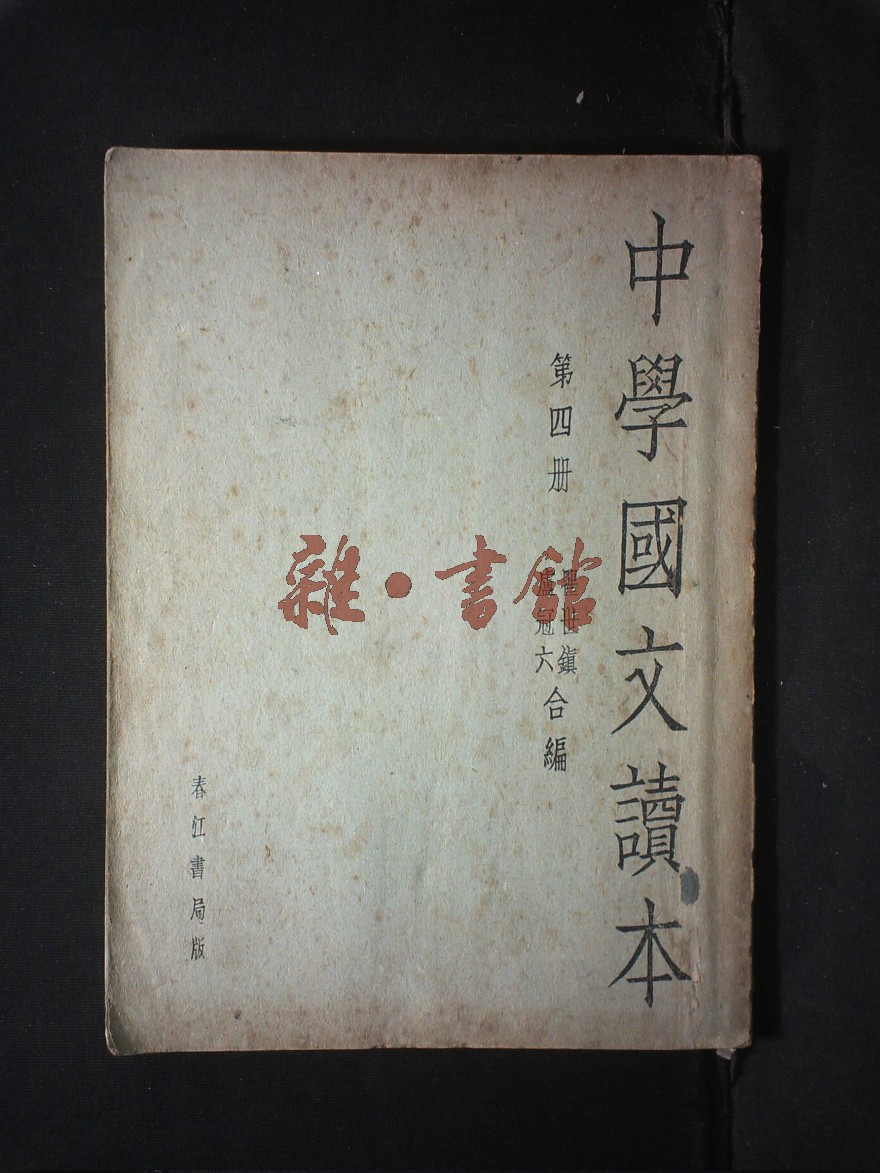 中學國文讀本
第四册
瞿世鎮
盧冠六
合編
春江書局版
雜·書館